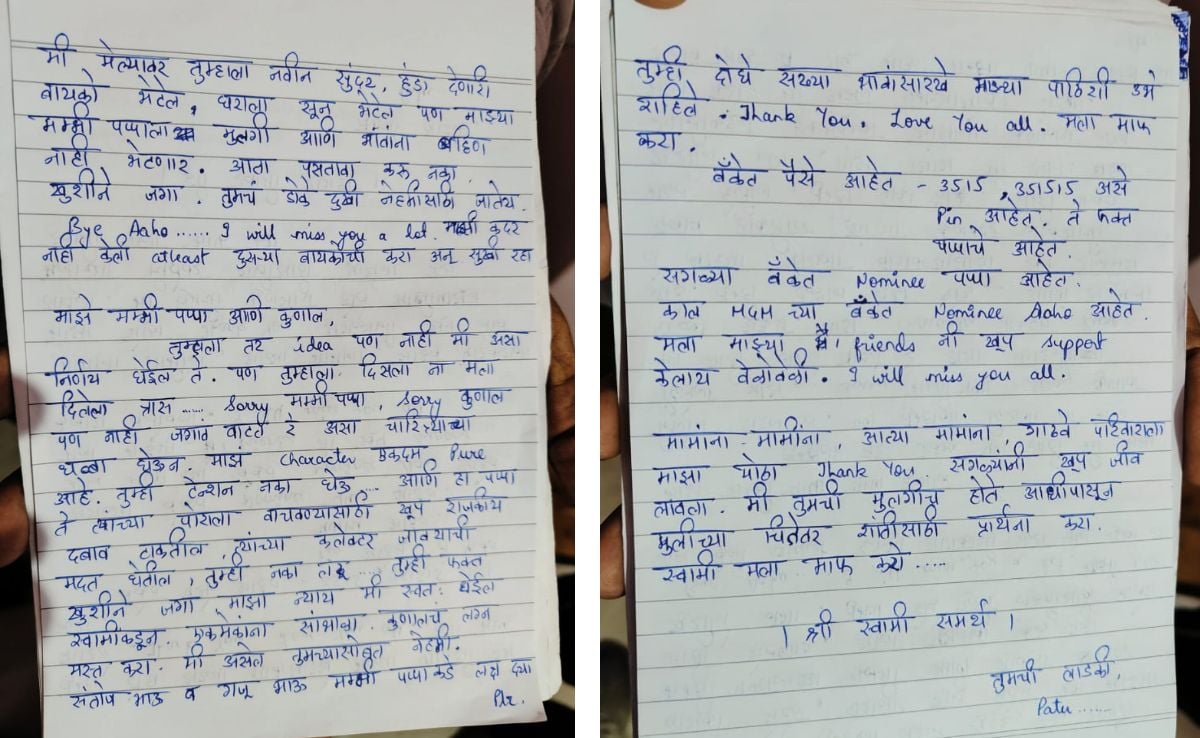 मी मेल्यावर तुम्हाला नवीन सुंदर, हुंडा देणारी
बायको भेटेल, घराला सून भेटेल पण माझ्या
मम्मी पप्पाला मुलगी आणि भावांना बहिण
नाही भेटणार. आता पस्तावा करू नका.
खुशीने जगा. तुमचं डोके दुखी नेहमीसाठी जातेय.
Bye Aaho...... I will miss you a lot. माझी कदर
नाही केली atleast दुसऱ्या बायकोची करा अन् सुखी रहा
माझे मम्मी पप्पा आणि कुणाल,
तुम्हाला तर idea पण नाही मी असा
निर्णय घेईल ते. पण तुम्हाला दिसला ना मला
दिलेला त्रास ...... Sorry मम्मी पप्पा, Sorry कुणाल
पण नाही जगावं वाटत रे असा चारित्र्याच्या
धब्बा घेऊन. माझं character एकदम Pure
आहे. तुम्ही टेन्शन नका घेऊ.... आणि हा पप्पा
ते त्यांच्या पोराला वाचवण्यासाठी खूप राजकीय
दबाव टाकतील, त्यांच्या कलेक्टर जावयाची
मदत घेतील, तुम्ही नका लढू.... तुम्ही फक्त
खुशीने जगा, माझा न्याय मी स्वतः घेईल
स्वामींकडून. एकमेकांना सांभाळा. कुणालचं लग्न
मस्त करा. मी असेल तुमच्यासोबत नेहमी.
संतोष भाऊ व राजू भाऊ मम्मी पप्पा कडे लक्ष द्या
Plz.
तुम्ही दोघे सख्या भावासारखे माझ्या पाठिशी उभे
राहिले. Thank You. Love You all. मला माफ
करा.
बँकेत पैसे आहेत - 3515, 351515 असे
Pin आहेत. ते फक्त
पप्पाचे आहेत.
सगळ्या बँकेत Nominee पप्पा आहेत.
काल MGM च्या बँकेत Nominee Aaho आहेत.
मला माझ्या friends नी खूप support
केलाय वेळोवेळी. I will miss you all.
मामांना-मामींना, आत्या मामांना, गाढवे परिवाराला
माझा मोठा Thank You. सगळ्यांनी खूप जीव
लावला. मी तुमची मुलगीच होते आधीपासून
मुलीच्या चितेवर शांतीसाठी प्रार्थना करा.
स्वामी मला माफ करो.....
। श्री स्वामी समर्थ ।
तुमची लाडकी,
Patu......